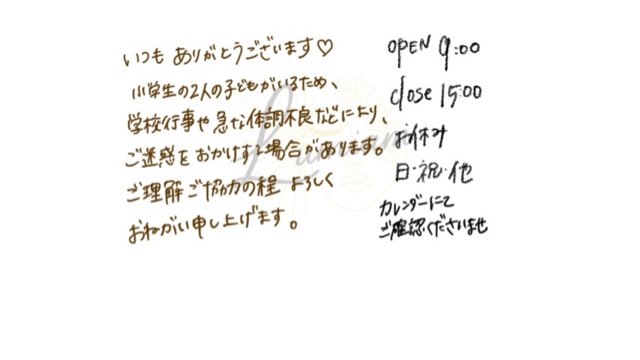 いつも ありがとうございます♡
小学生の2人の子どもがいるため、
学校行事や急な体調不良などにより、
ご迷惑をおかけする場合があります。
ご理解ご協力の程 よろしく
おねがい申し上げます。
OPEN 9:00
close 15:00
お休み
日・祝・他
カレンダーにて
ご確認くださいませ
Lumiere